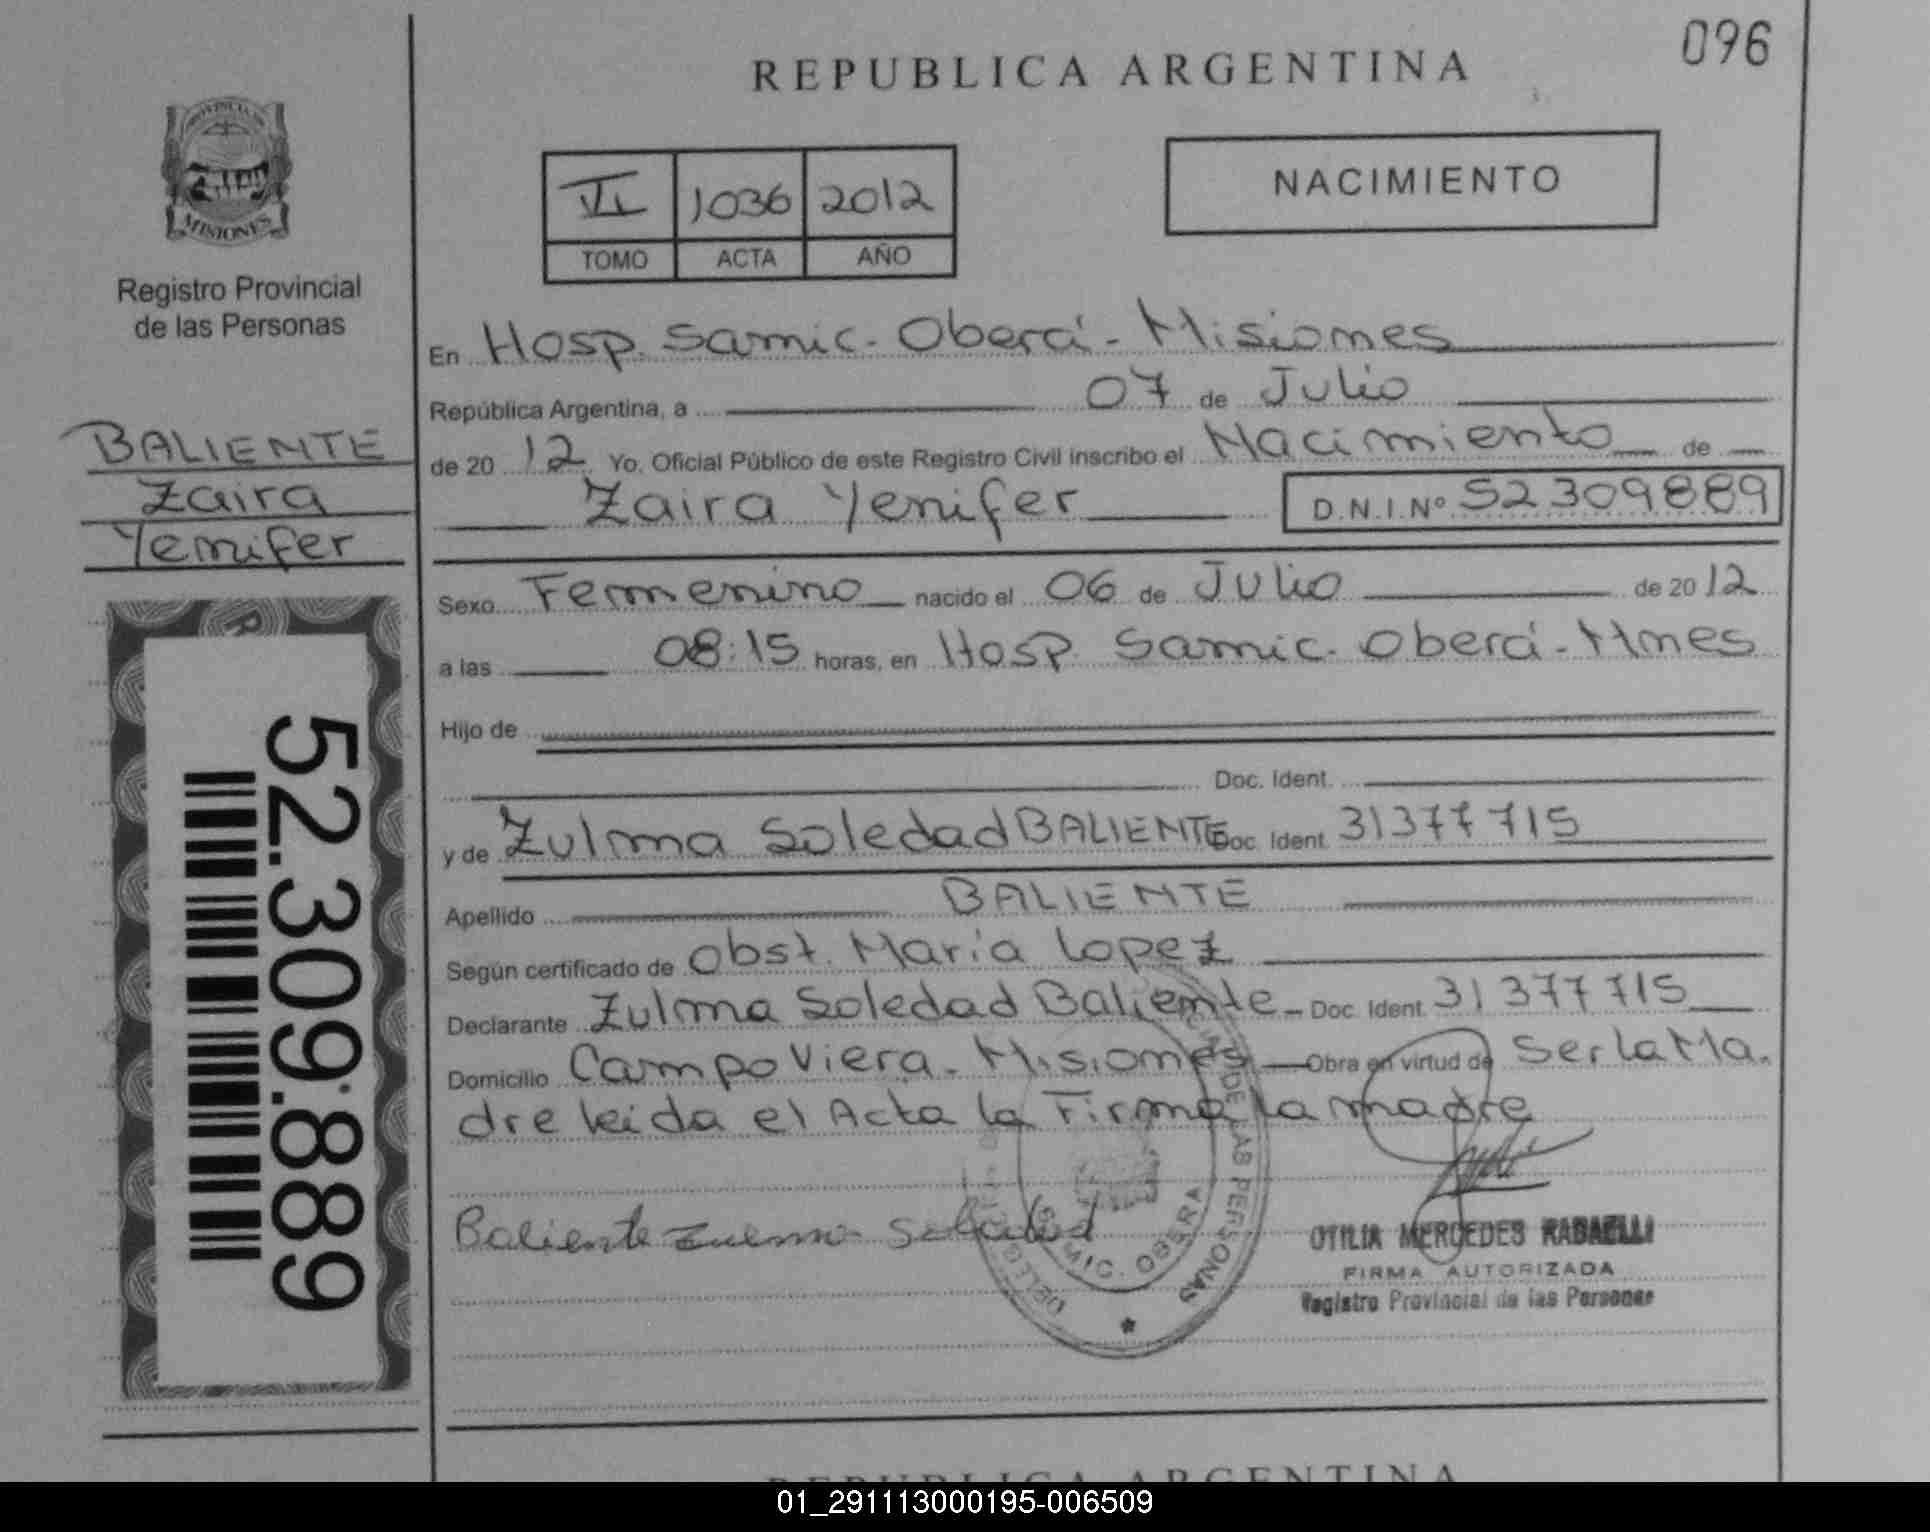 096
REPUBLICA ARGENTINA
PROVINCIA DE
MISIONES
Registro Provincial
de las Personas
VI 1036 2012
TOMO ACTA AÑO
NACIMIENTO
BALIENTE
Zaira
Yenifer
52.309.889
En Hosp. Samic. Oberá - Misiones
República Argentina, a 07 de Julio
de 20 12 Yo. Oficial Público de este Registro Civil inscribo el Nacimiento de
Zaira Yenifer D.N.I.Nº 52309889
Sexo Femenino nacido el 06 de Julio de 20 12
a las 08:15 horas, en Hosp. Samic. Oberá - Mnes
Hijo de
Doc. Ident.
y de Zulma Soledad BALIENTE Doc. Ident. 31377715
Apellido BALIENTE
Según certificado de Obst. Maria Lopez
Declarante Zulma Soledad Baliente - Doc. Ident. 31377715
Domicilio Campo Viera - Misiones Obra en virtud de Ser la Ma.
dre leida el Acta la Firma la madre
Baliente Zulma Soledad
DE LAS PERSONAS
SAMIC. OBERA
OTILIA MERCEDES RABAELLI
FIRMA AUTORIZADA
Registro Provincial de las Personas
REPUBLICA ARGENTINA
01_291113000195-006509